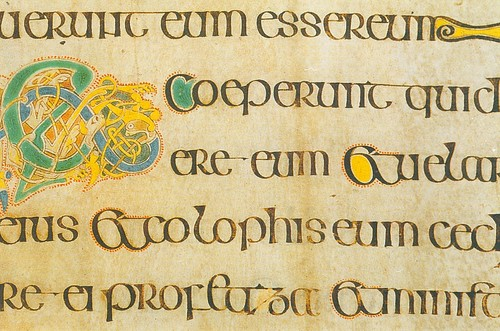 uerunt eum essereum
& coeperunt quid
ere eum & uelar
eius & colophis eum ced
re ei profetiza & minist